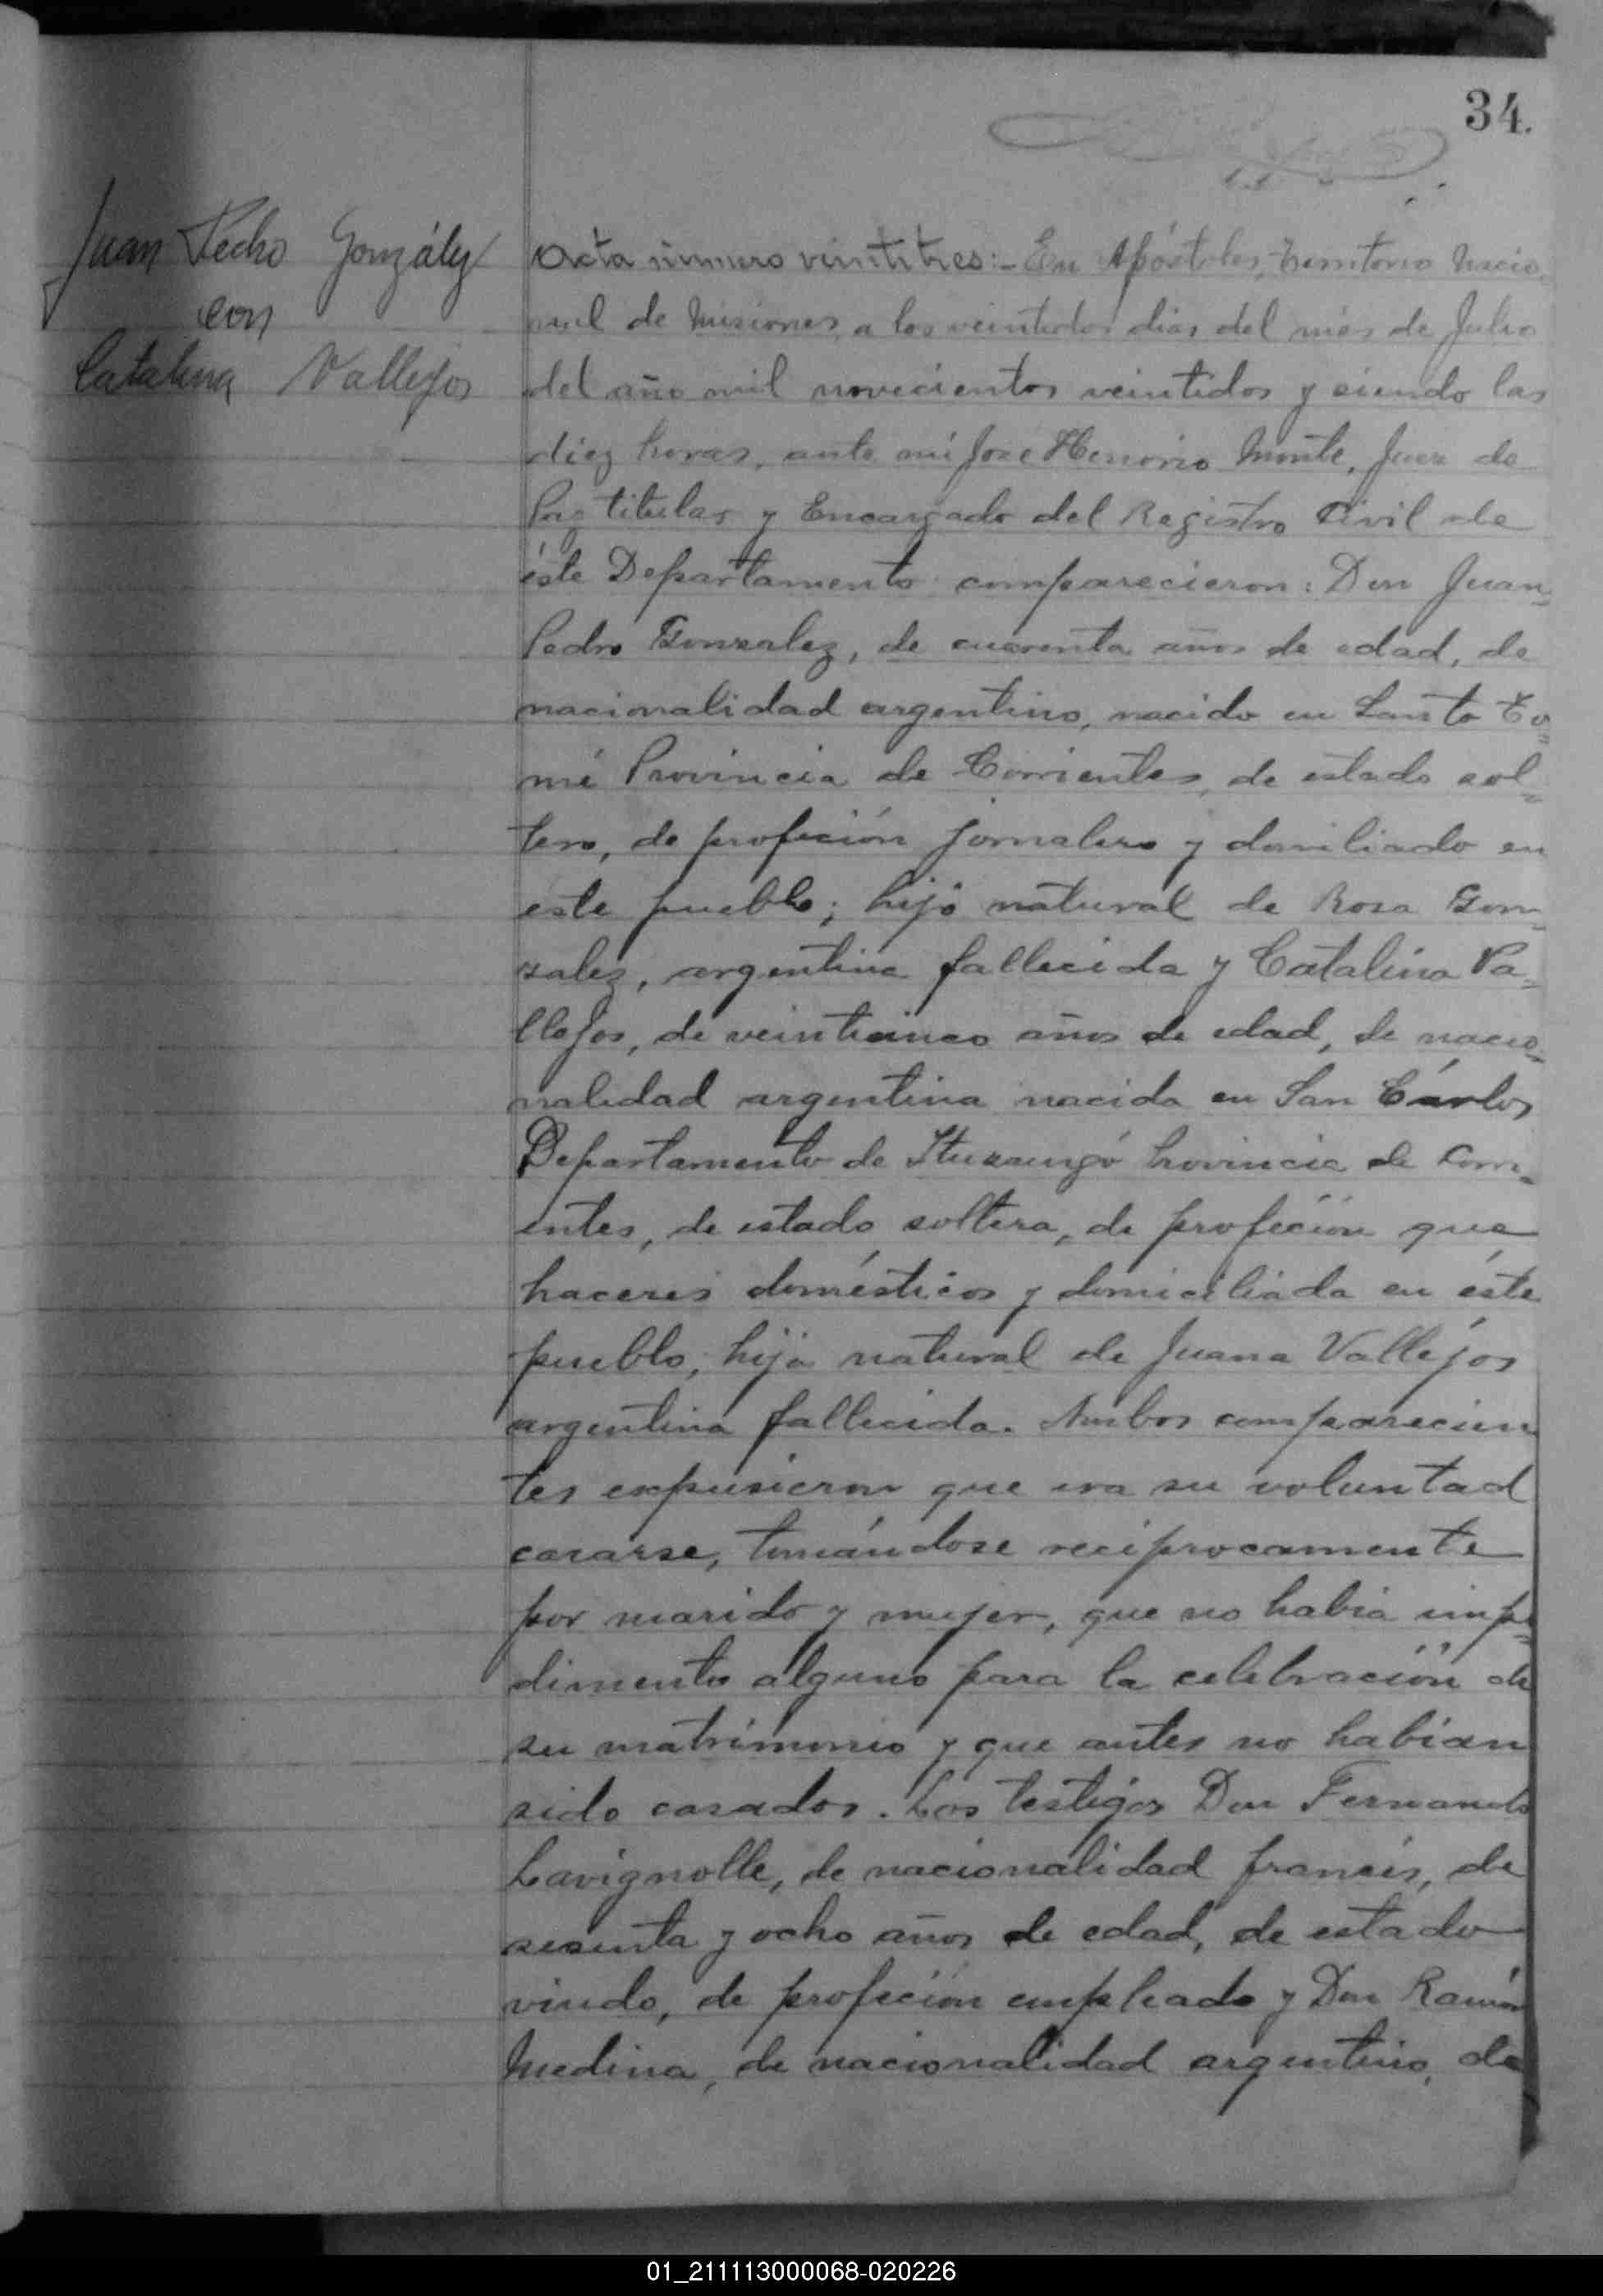 34.
Juan Pedro González
con
Catalina Vallejos
Acta número veintitres:- En Apóstoles, Territorio Nacio-
nal de Misiones, a los veintidos dias del mes de Julio
del año mil novecientos veintidos y siendo las
diez horas, ante mi Jose Honorio Monte, Juez de
Paz titular y Encargado del Registro Civil de
éste Departamento comparecieron: Don Juan
Pedro Gonzalez, de cuarenta años de edad, de
nacionalidad argentino, nacido en Santo To=
mé Provincia de Corrientes, de estado sol=
tero, de profeción jornalero y domiliado en
este pueblo; hijo natural de Rosa Gon=
zalez, argentina fallecida y Catalina Va=
llejos, de veinticinco años de edad, de nacio=
nalidad argentina nacida en San Cárlos
Departamento de Ituzaingó Provincia de Corri=
entes, de estado soltera, de profeción que
haceres domésticos y domiciliada en éste
pueblo, hija natural de Juana Vallejos
argentina fallecida. Ambos comparecien
tes expusieron que era su voluntad
casarse, tomándose reciprocamente
por marido y mujer, que no habia impe=
dimento alguno para la celebración de
su matrimonio y que antes no habian
sido casados. Los testigos Don Fernando
Lavignolle, de nacionalidad francés, de
sesenta y ocho años de edad, de estado
viudo, de profeción empleado y Don Ramón
Medina, de nacionalidad argentino, de
01_211113000068-020226